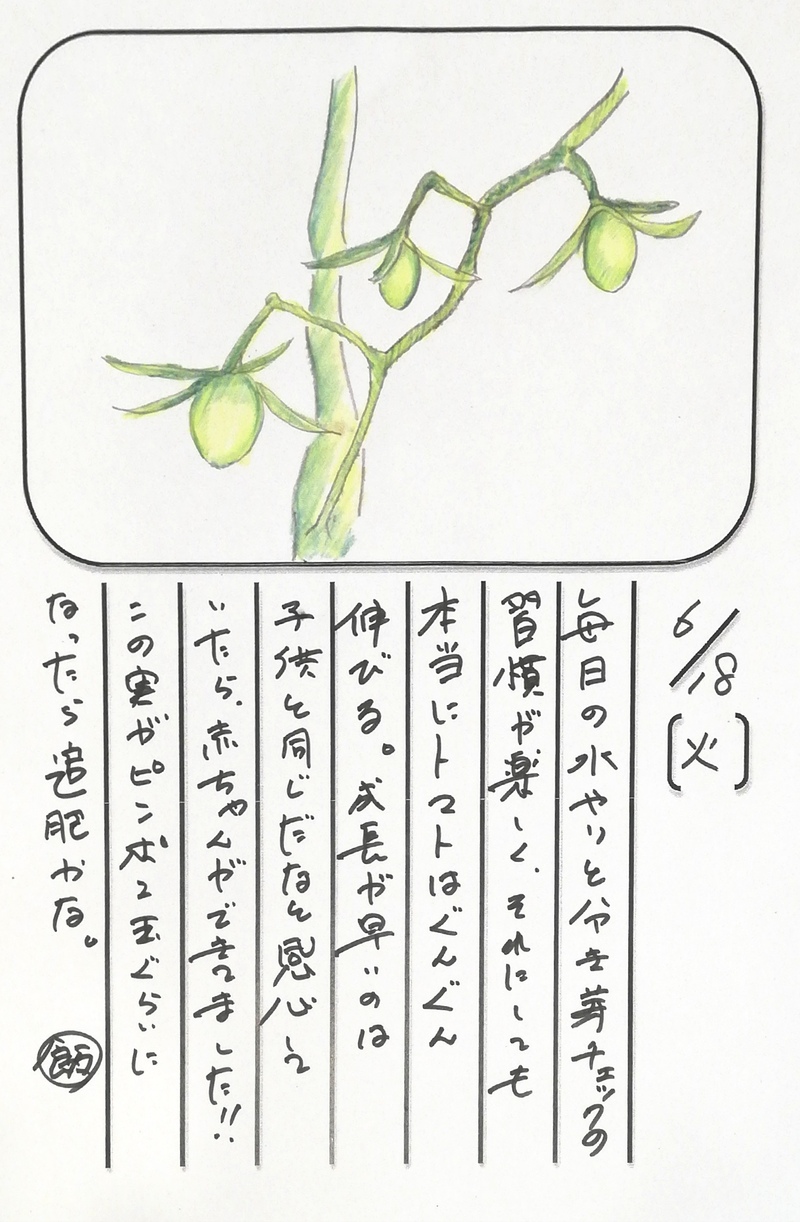 6/18(火)
毎日の水やりとわき芽チェックの
習慣が楽しく、それにしても
本当にトマトはぐんぐん
伸びる。成長が早いのは
子供と同じだなと感心して
いたら、赤ちゃんができてました!!
この実がピンポン玉ぐらいに
なったら追肥かな。
飯